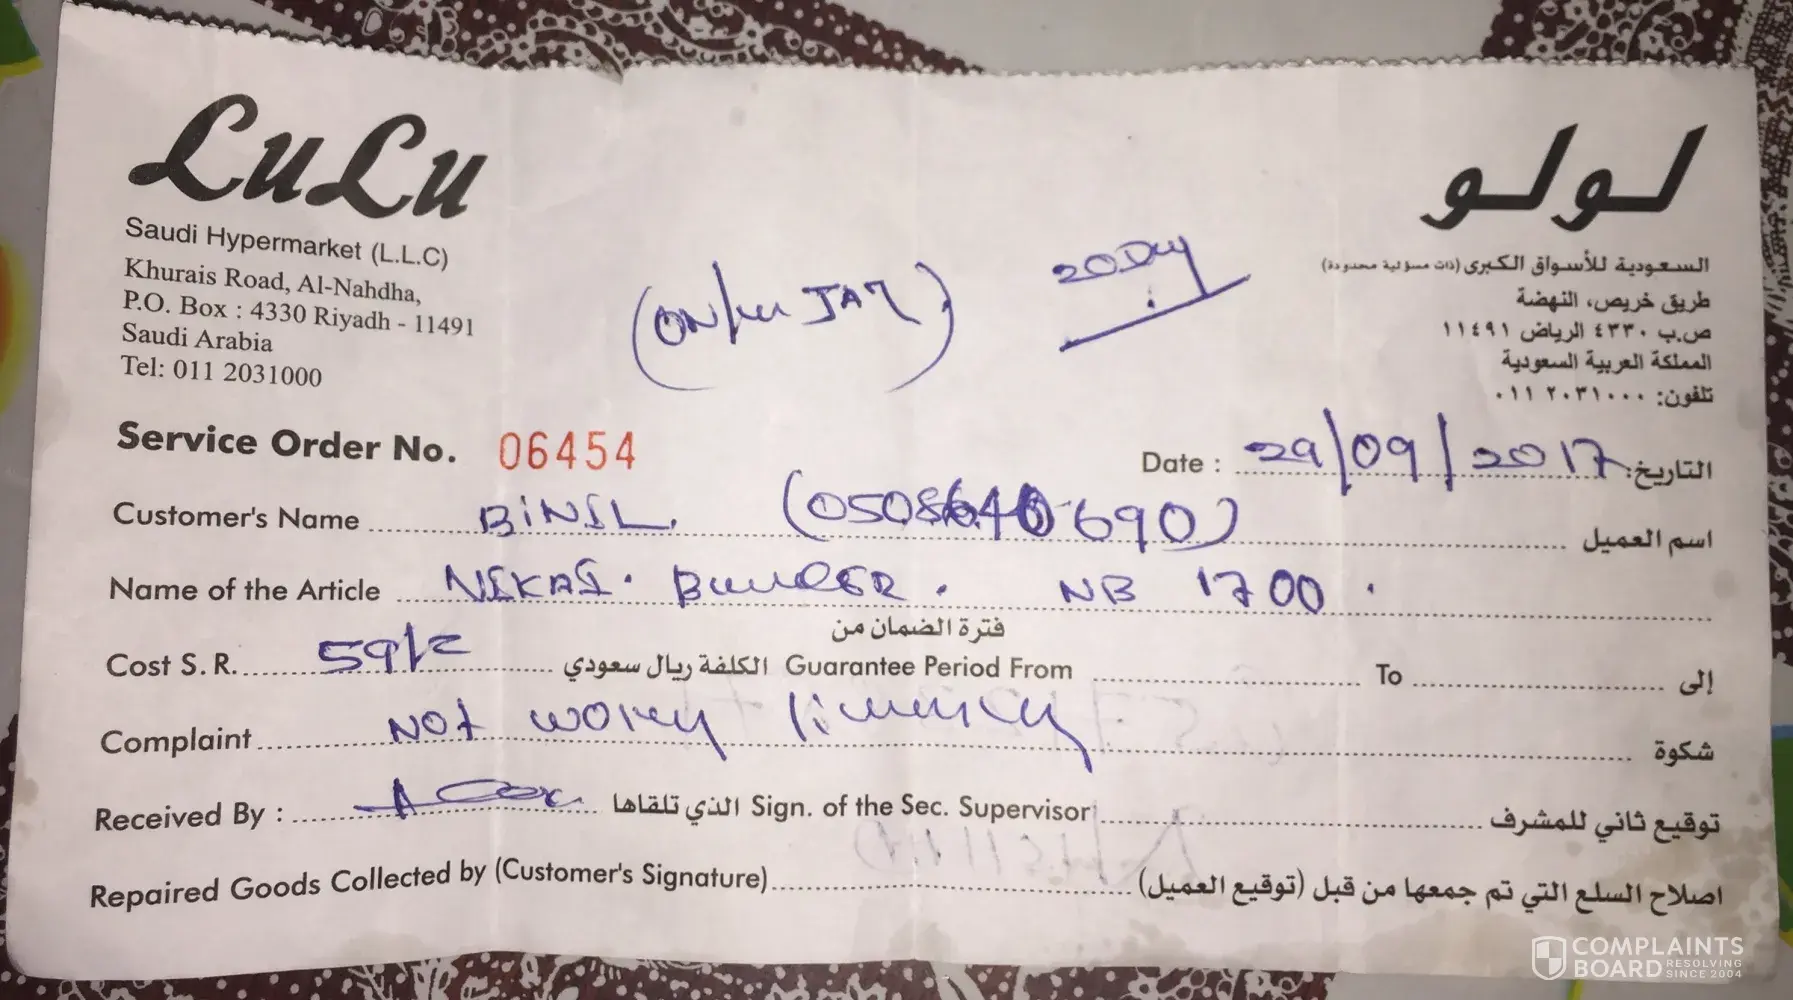 LuLu
لولو
Saudi Hypermarket (L.L.C)
السعودية للأسواق الكبرى (ذات مسؤلية محدودة)
Khurais Road, Al-Nahdha,
طريق خريص، النهضة
P.O. Box : 4330 Riyadh - 11491
ص.ب ٤٣٣٠ الرياض ١١٤٩١
Saudi Arabia
المملكة العربية السعودية
Tel: 011 2031000
تلفون: ٢٠٣١٠٠٠ ٠١١
JAR)
20 Day
Service Order No. 06454
Date : 29/09/2017 التاريخ:
Customer's Name BINIL اسم العميل
Name of the Article NIKAI. NB 1700.
Cost S.R. 59/= الكلفة ريال سعودي
فترة الضمان من
Guarantee Period From To إلى
Complaint Not شكوة
Received By : الذي تلقاها Sign. of the Sec. Supervisor توقيع ثاني للمشرف
Repaired Goods Collected by (Customer's Signature) اصلاح السلع التي تم جمعها من قبل (توقيع العميل)
COMPLAINTS
BOARD RESOLVING SINCE 2004